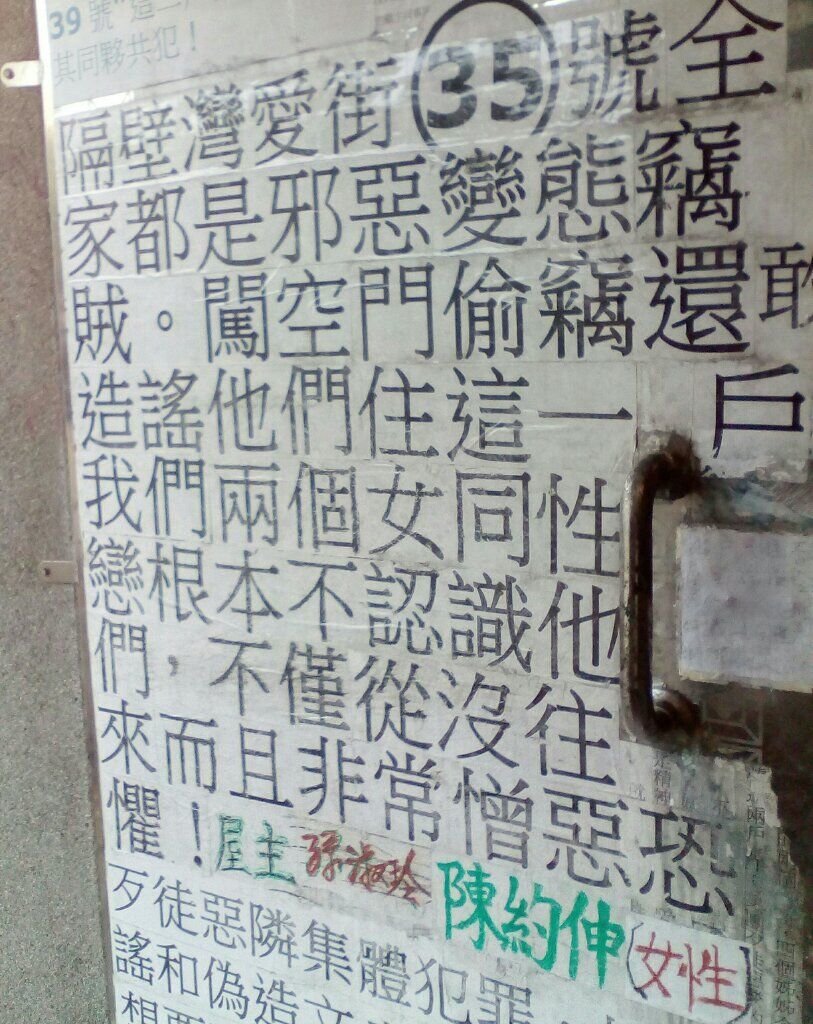 39 號
其同夥共犯！
隔壁灣愛街35號全
家都是邪惡變態竊
賊。闖空門偷竊還敢
造謠他們住這一戶
我們兩個女同性
戀根本不認識他
們，不僅從沒往
來而且非常憎惡恐
懼！屋主 孫淑玲 陳約伸(女性)
歹徒惡隣集體犯罪
謠和偽造文